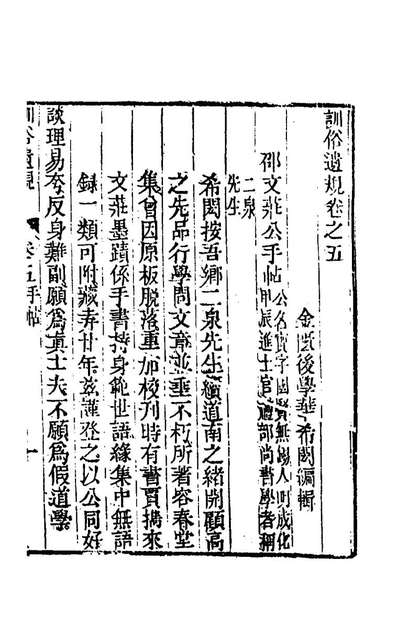 訓俗遺規卷之五
金匱後學華希閎編輯
邵文莊公手帖
公名寶字國賢無錫人明成化
甲辰進士官禮部尚書學者稱
二泉
先生
希閎按吾鄉二泉先生續道南之緒開顧高
之先品行學問文章並垂不朽所著容春堂
集曾因原板脫落重加校刊時有書賈携來
文莊墨蹟係手書持身範世語緣集中無語
錄一類可附藏弆廿年玆謹登之以公同好
談理易夸反身難副願爲眞士夫不願爲假道學
訓俗遺規
卷五手帖
一